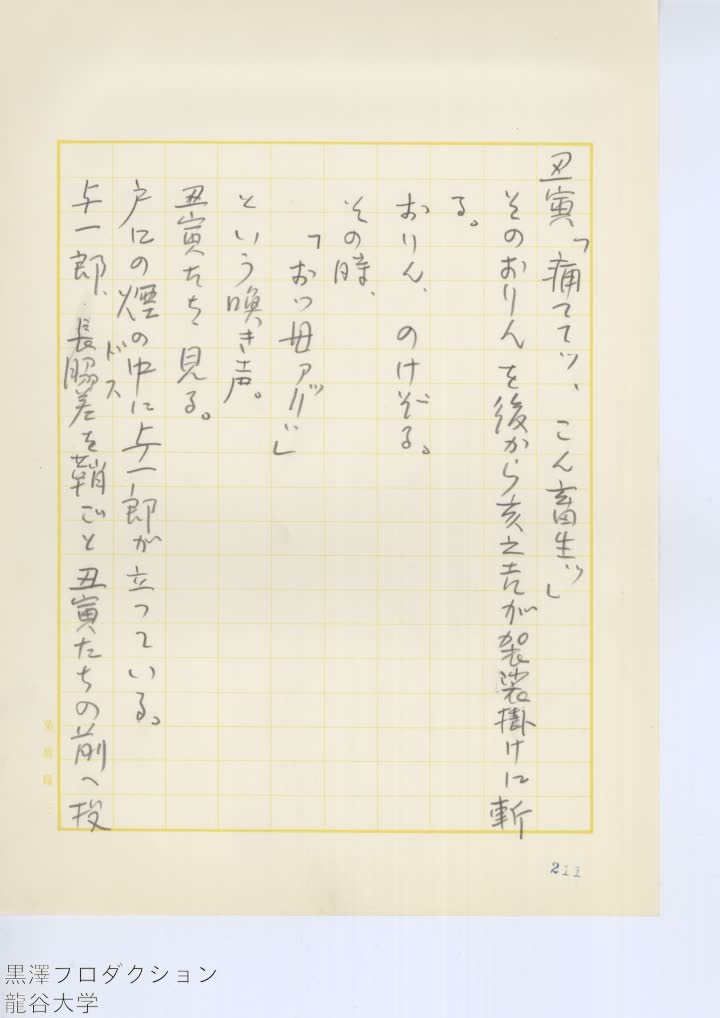 丑寅「痛ててッ、こん畜生ッ」
そのおりんを後から亥之吉が袈裟掛けに斬
る。
おりん、のけぞる。
その時、
「おッ母アッ!!」
という喚き声。
丑寅たち、見る。
戸口の煙の中に与一郎が立っている。
与一郎、長脇差を鞘ごと丑寅たちの前へ投
ドス
211
黒澤プロダクション
龍谷大学